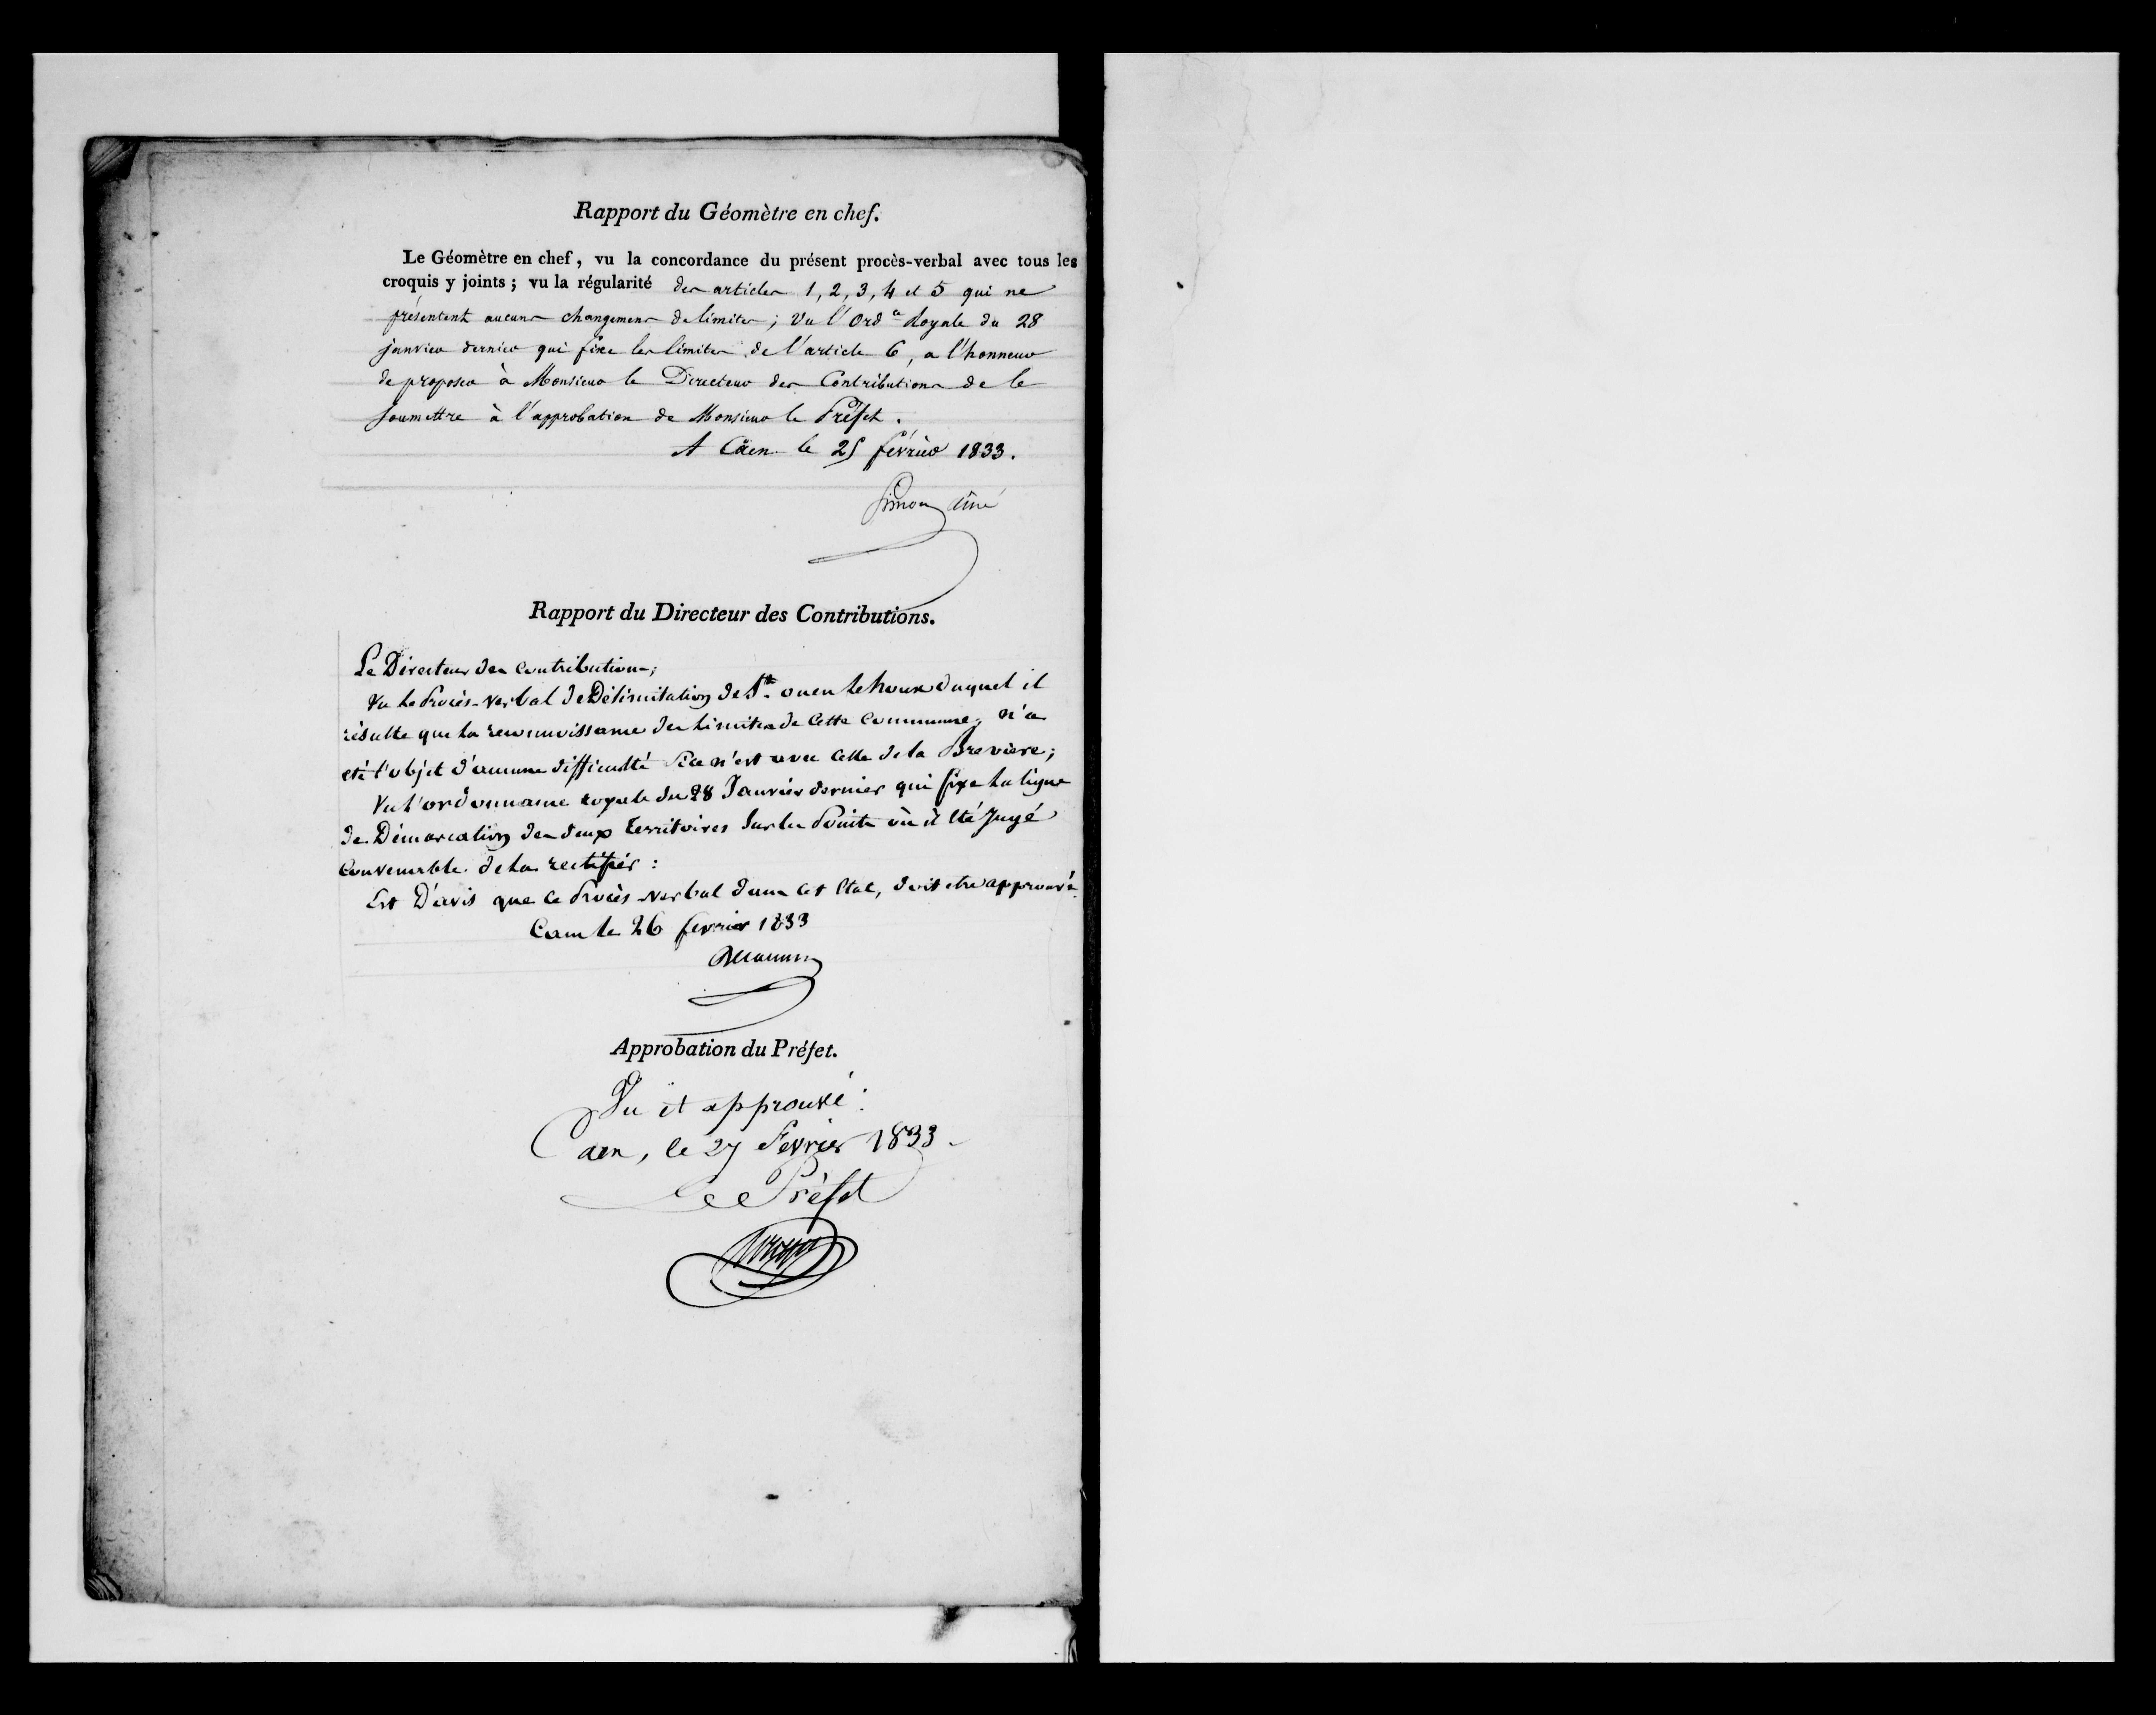 Rapport du Géomètre en chef.
Le Géomètre en chef, vu la concordance du présent procès-verbal avec tous les
croquis y joints ; vu la régularité des articles 1, 2, 3, 4 et 5 qui ne
présentent aucuns changemens de limites ; Vu l'Ord.ce Royale du 28
janvier dernier qui fixe les limites de l'article 6, a l'honneur
de proposer à Monsieur le Directeur des Contributions de le
soumettre à l'approbation de Monsieur le Préfet.
A Caen le 25 février 1833.
Simon aîné
Rapport du Directeur des Contributions.
Le Directeur des Contributions;
Vu le Procès-verbal de Délimitation de St. ouen le houx duquel il
résulte que la reconnoissance des limites de cette commune, n'a
eté l'objet d'aucune difficulté si ce n'est avec celle de la Breviere;
Vu l'ordonnance royale du 28 Janvier dernier qui fixe la ligne
de Démarcation des deux territoires sur les Points où il été Jugé
convenable de la rectifier :
Est D'avis que ce Procès-verbal dans cet Etat, doit etre approuvé.
Caen le 26 fevrier 1833
Approbation du Préfet.
Vu et approuvé :
Caen, le 27 Février 1833.
Le Préfet